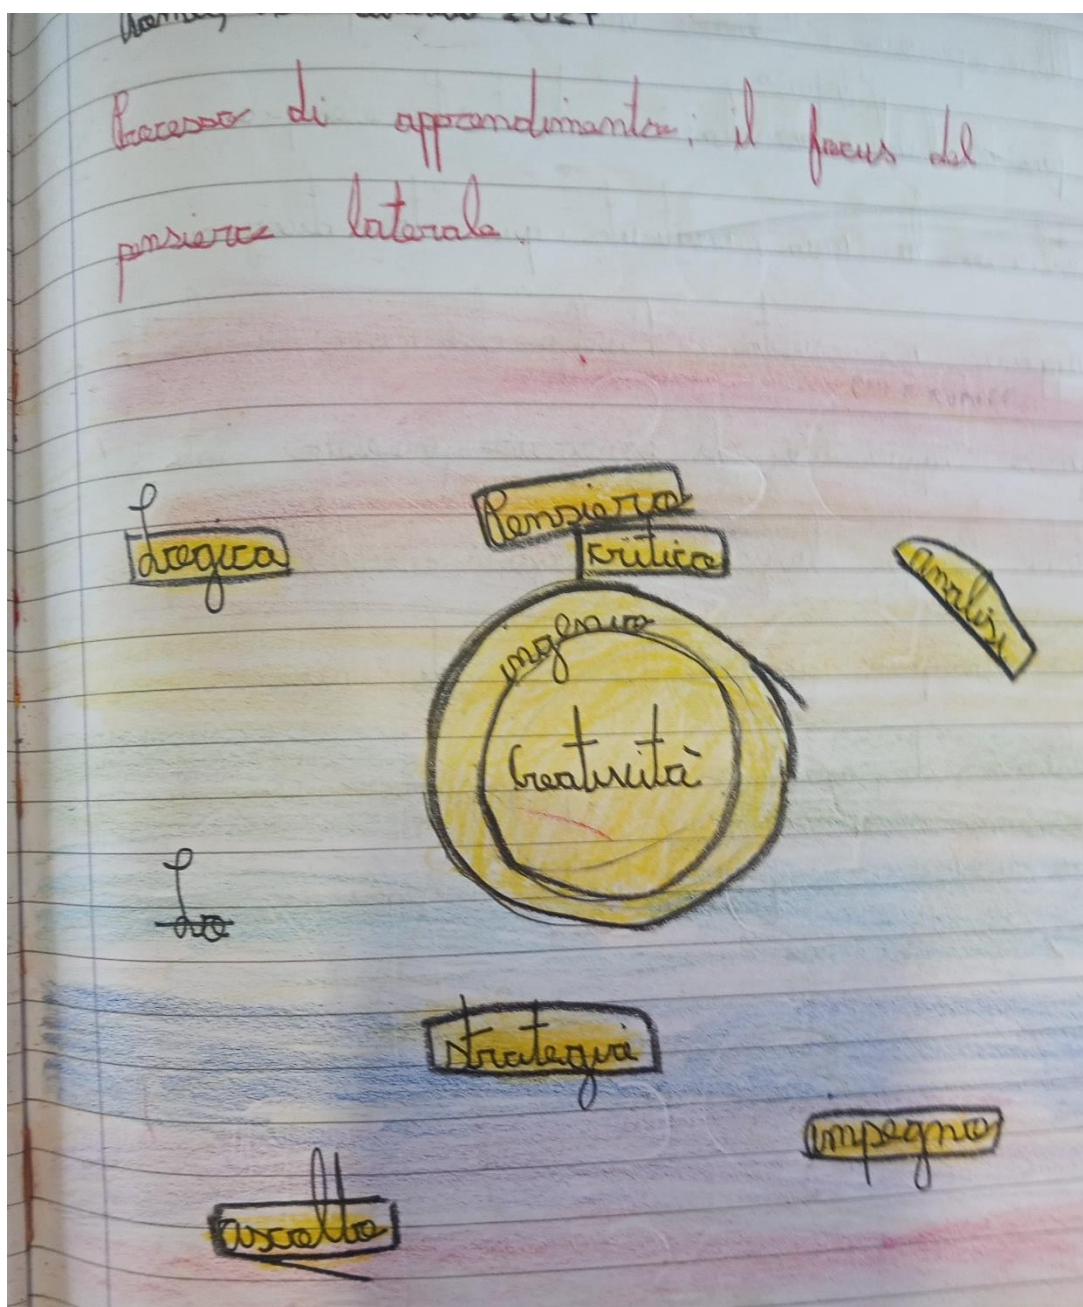 2024
Processo di apprendimento: il focus del
pensiero laterale.
Logica
Pensiero
critico
analisi
ingegno
Creatività
Lo
strategia
impegno
ascolto